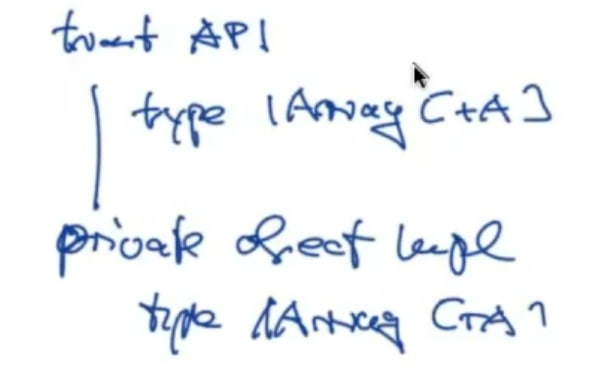 trait API
type IArray [+A]
private object Impl
type IArray [+A]